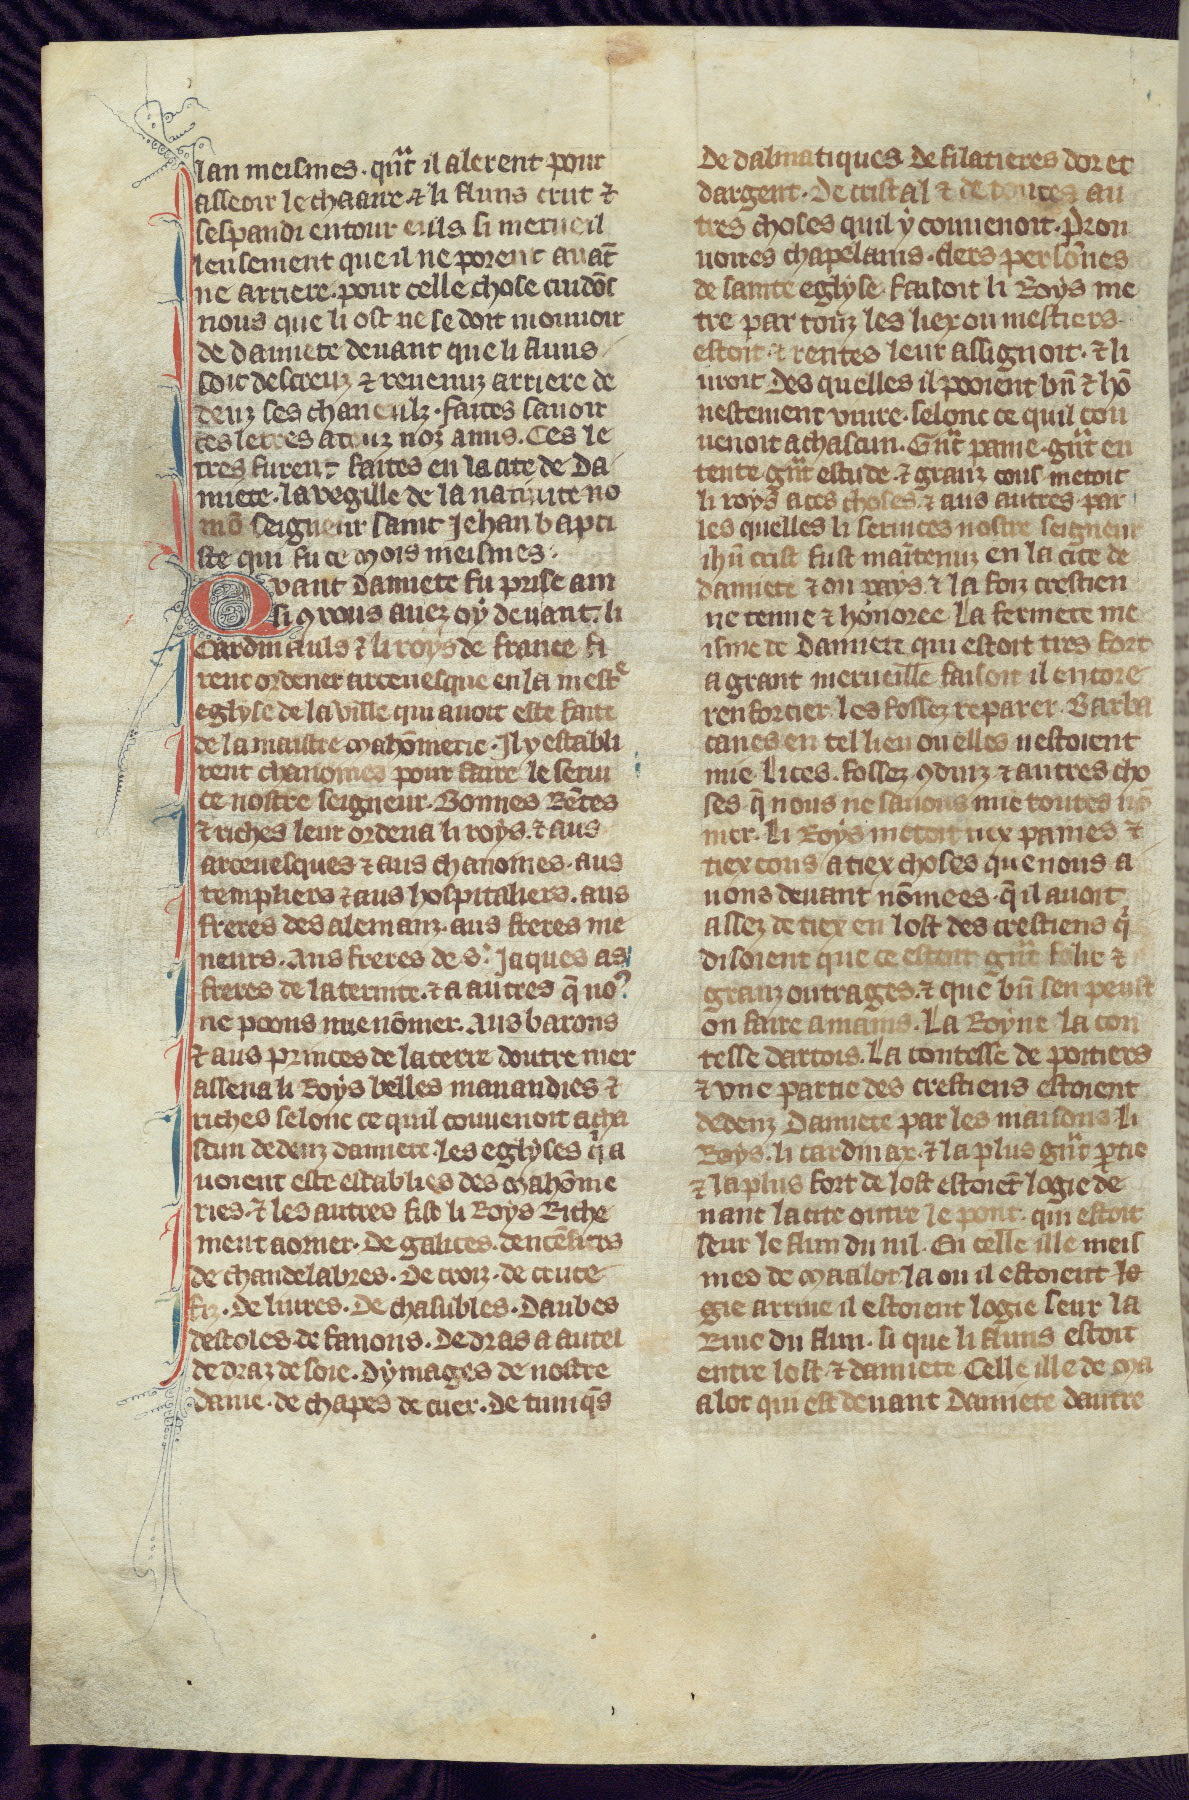 lan meismes. qnͣt il alerent pour
asseoir le chaaire ⁊ li fluns crut ⁊
sespandi entour euls si merueil
leusement que il ne porent auāt
ne arriere. pour celle chose cuidōs
nous que li ost ne se doit mouuoir
de damiete deuant que li fluns
soit descreuz ⁊ reuenuz arriere de
denz ses chaneulz. faites sauoir
ces letres a touz noz amis. Ces le
tres furent faites en la cite de Da
miete. la vegille de la natiuite no
mō seigneur saint Jehan bapti
ste qui fu ce mois meismes.
Quant damiete fu prise ain
si ꝯ vous auez oy deuant. li
Cardinauls ⁊ li roys de france fi
rent ordener arceuesque en la mestͤ
eglyse de la ville qui auoit este faite
de la maistre mahōmerie. Il y establi
rent chanoines pour faire le serui
ce nostre seigneur. Bonnes Rētes
⁊ riches leur ordena li roys. ⁊ aus
arceuesques ⁊ aus chanoines. aus
templiers ⁊ aus hospitaliers. aus
freres des alemanz. aus freres me
neurs. Aus freres de s. Jaques as
freres de la terinte. ⁊ a autres q̄ noꝰ
ne poons mie nōmer. Aus barons
⁊ aus princes de la terre doutre mer
assena li Roys belles manandies ⁊
riches selonc ce quil conuenoit a cha
scun dedenz damiete. les eglyses q̇ a
uoient este establies des mahōme
ries. ⁊ les autres fist li Roys Riche
ment aorner. De galices. dencēsiers
de chandelabres. De croiz. de cruce
fiz. De liures. De chasubles. Daubes
destoles. de fanons. De dras a autel
de draz de soie. Dymages de nostre
dame. de chapes de cuer. De tuniq̄s
De dalmatiques De filatieres dor et
dargent. De cristal ⁊ de toutes au
tres choses quil y conuenoit. Prou
uoires chapelains. clers persōnes
de sainte eglyse faisoit li Roys me
tre par touz les liex ou mestiers
estoit. ⁊ rentes leur assignoit. ⁊ li
uroit des quelles il pooient bn̄ ⁊ hō
nestement viure. selonc ce quil con
uenoit a chascun. Gnͣt paine. gnͣt en
tente. gnͣt estude. ⁊ granz cous metoit
li roys a ces choses. ⁊ aus autres par
les quelles li seruices nostre seigneur
ihū crist fust maītenuz en la cite de
damiete ⁊ ou pays. ⁊ la foiz crestien
ne tenue ⁊ hōnoree La fermete me
isme de Damiete qui estoit tres fort
a grant merueille faisoit il encore
renforcier. les fossez reparer. Barba
canes en tel lieu ou elles nestoient
mie. Lices. fossez. ꝯduiz ⁊ autres cho
ses. q̄ nous ne sauons mie toutes nō
mer. Li Roys metoit tiex paines ⁊
tiex cous a tiex choses que nous a
uons deuant nōmees. q̄ il auoit
assez de tiex en lost des crestiens q̇
disoient que ce estoit gnͣt folie ⁊
granz outrages. ⁊ que bn̄ sen peust
on faire a mains. La Royne la con
tesse dartois. La contesse de poitiers
⁊ vne partie des crestiens estoient
dedenz Damiete par les maisons. li
Roys. li cardinax. ⁊ la plus gnͣt p̄tie
⁊ la plus fort de lost estoiēt logie de
uant la cite outre le pont. qui estoit
seur le flun du nil. En celle ille meis
mes de maalot. la ou il estoient lo
gie arriue il estoient logie seur la
Riue du flun. si que li fluns estoit
entre lost ⁊ damiete Celle ille de ma
alot qui est deuant Damiete dautre